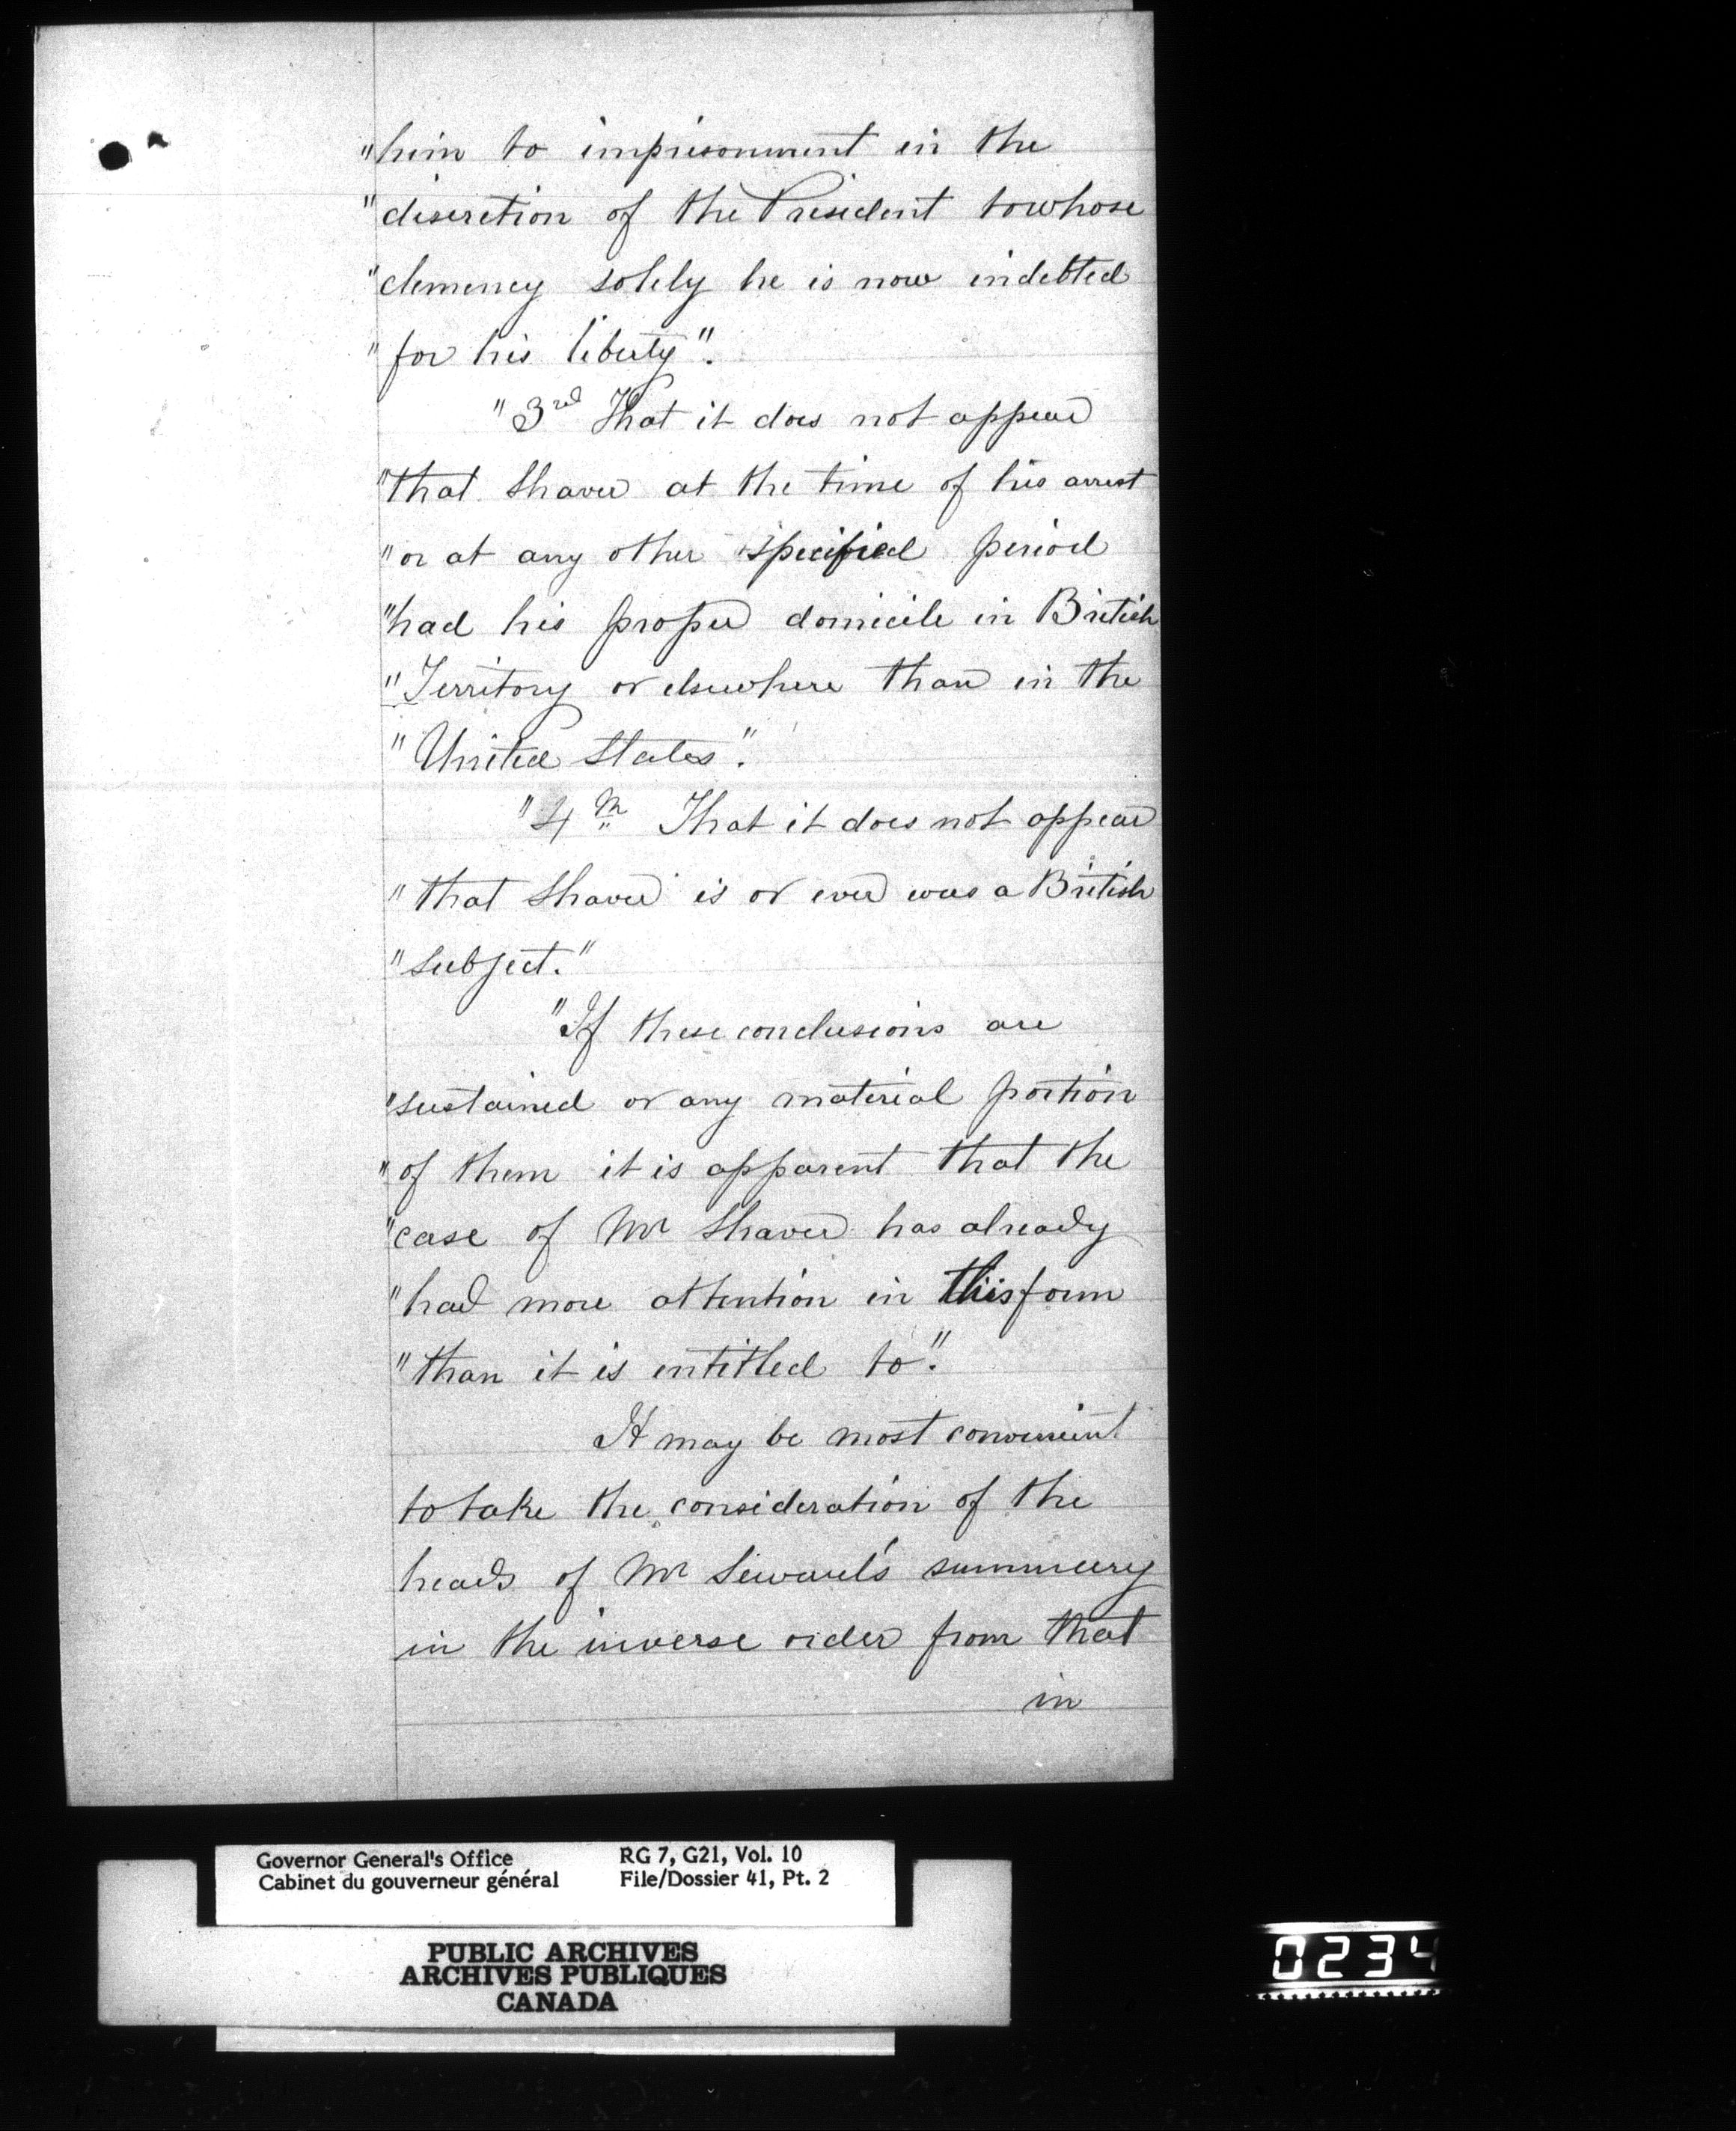 "him to imprisonment in the
"discretion of the President to whose
"clemency solely he is now indebted
"for his liberty".
"3rd That it does not appear
"that Shaver at the time of his arrest
"or at any other specified period
"had his proper domicile in British
"Territory or elsewhere than in the
"United States".
"4th That it does not appear
"that Shaver is or ever was a British
"subject."
"If these conclusions are
"sustained or any material portion
"of them it is apparent that the
"case of Mr Shaver has already
"had more attention in this form
"than it is entitled to".
It may be most convenient
to take the consideration of the
heads of Mr Seward's summary
in the inverse order from that
in
Governor General's Office RG 7, G21, Vol. 10
Cabinet du gouverneur général File/Dossier 41, Pt. 2
PUBLIC ARCHIVES
ARCHIVES PUBLIQUES
CANADA
0234